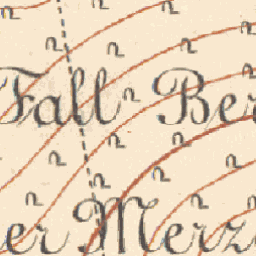 Fall Ber
er Merz